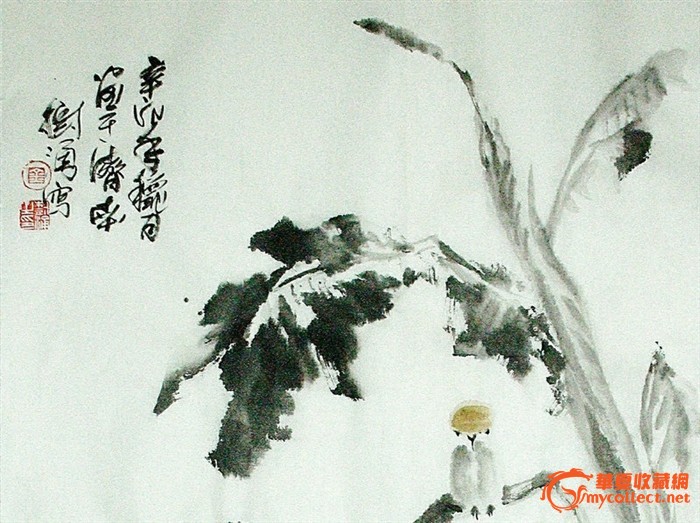 辛卯年龝月
畫于濟南
樹涌寫
華夏收藏網
mycollect.net